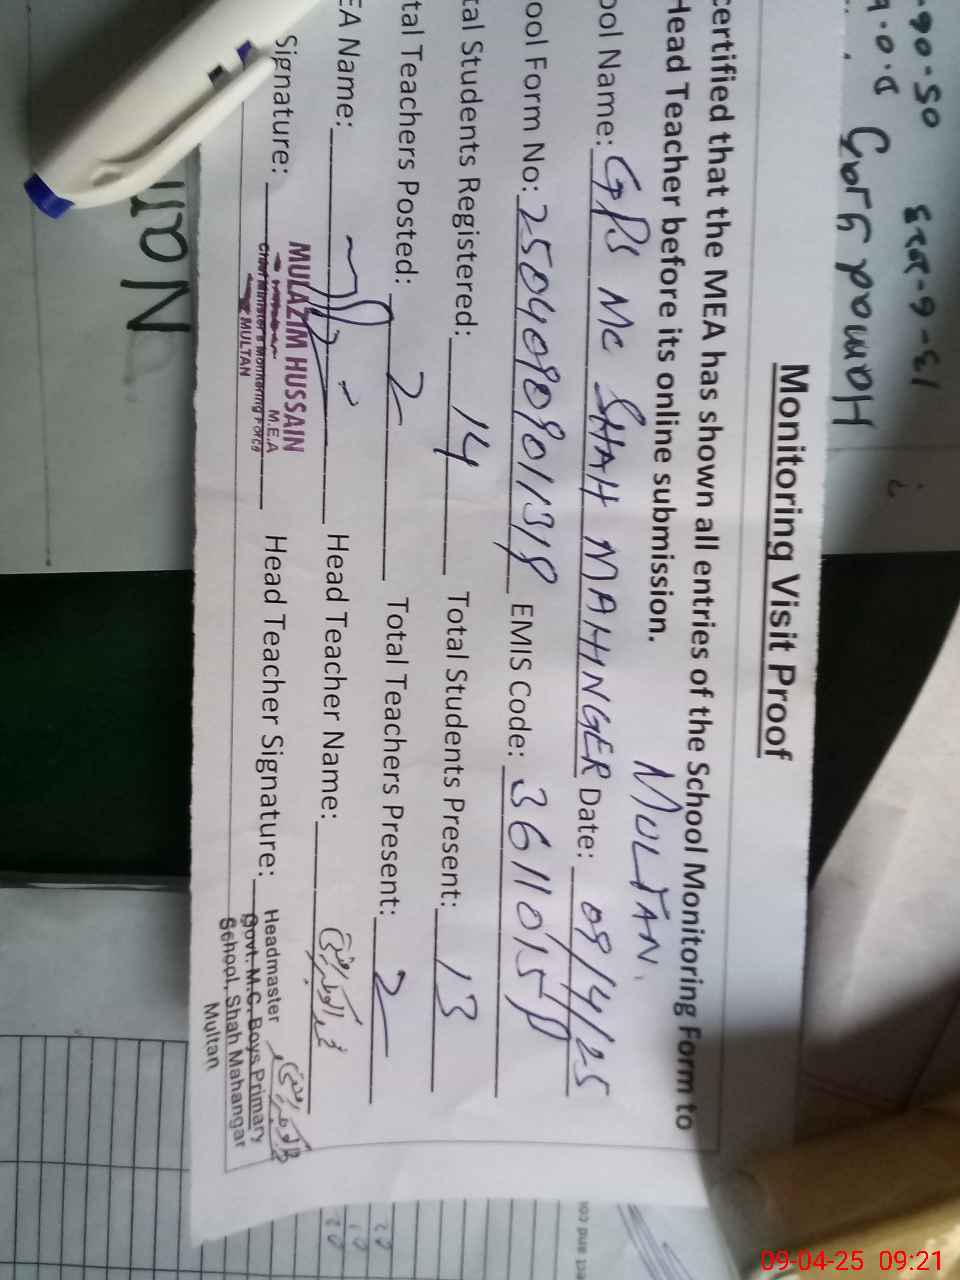 Monitoring Visit Proof
certified that the MEA has shown all entries of the School Monitoring Form to
Head Teacher before its online submission.
MULTAN.
ool Name: GPS MC SHAH MAHINGER Date: 09/4/25
ool Form No: 2504090901318 EMIS Code: 36110158
tal Students Registered: 14 Total Students Present: 13
tal Teachers Posted: 2 Total Teachers Present: 2
EA Name: Head Teacher Name:
Signature: Head Teacher Signature:
MULAZIM HUSSAIN
M.E.A
Chief Minister's Monitoring Force
MULTAN
Headmaster
Govt. M.C. Boys Primary
School, Shah Mahangar
Multan
09-04-25 09:21